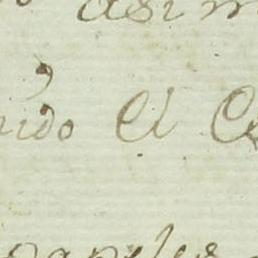 asi m
nido El C
papeles